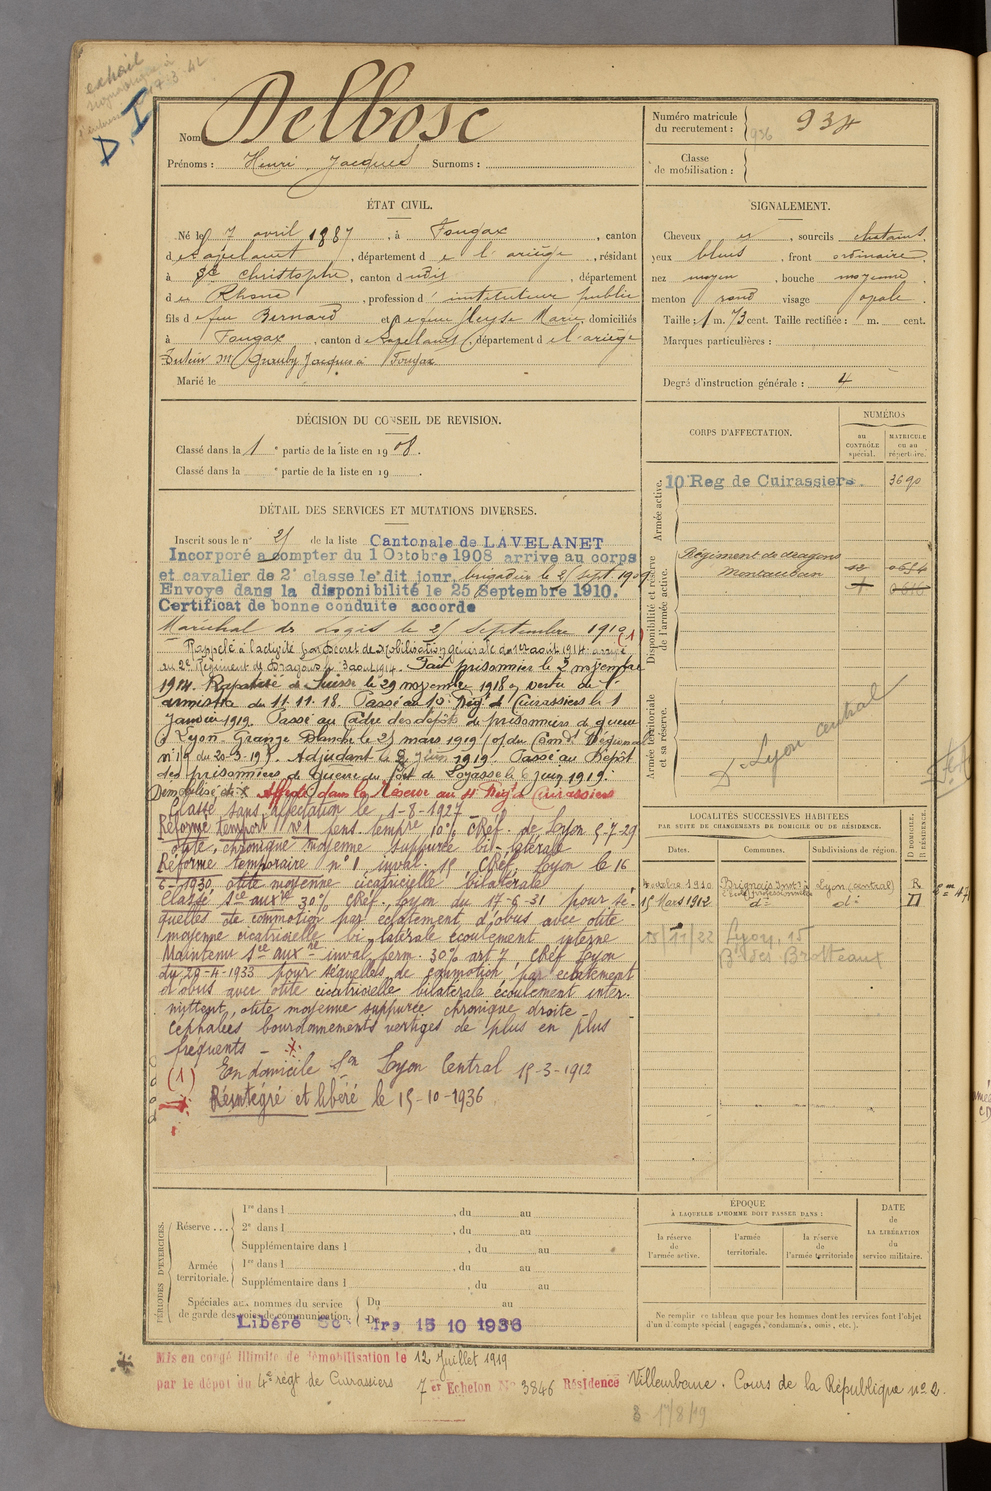 extrait
17-3-42
D I
Nom : Delbosc
Prénoms : Henri Jacques Surnoms :
Numéro matricule du recrutement : 936 934
Classe de mobilisation :
ÉTAT CIVIL.
Né le 7 avril 1887, à Fougax, canton
d Lavelanet, département d e l'ariège, résidant
à St Christophe, canton d , département
d u Rhône, profession d' instituteur public
fils d e feu Bernard et d e Marie domiciliés
à Fougax, canton d e Lavelanet, département d e l'ariège
Tuteur Mr Jacques à Fougax
Marié le
SIGNALEMENT.
Cheveux et, sourcils chatains
yeux bleus, front ordinaire
nez moyen, bouche moyenne
menton rond visage ovale
Taille : 1 m. 73 cent. Taille rectifiée : m. cent.
Marques particulières :
Degré d'instruction générale : 4
DÉCISION DU CONSEIL DE REVISION.
Classé dans la 1e partie de la liste en 1908.
Classé dans la e partie de la liste en 19
CORPS D'AFFECTATION.
NUMÉROS
au CONTRÔLE spécial.
MATRICULE ou au répertoire.
Armée active.
10 Reg de Cuirassiers. 3690
Disponibilité et réserve de l'armée active.
Régiment de dragons
Montauban
Armée territoriale et sa réserve.
Dre Lyon central
DÉTAIL DES SERVICES ET MUTATIONS DIVERSES.
Inscrit sous le n° 21 de la liste Cantonale de LAVELANET
Incorporé a compter du 1 Octobre 1908 arrivé au corps
et cavalier de 2e classe le dit jour, brigadier le 25 sept 1909
Envoyé dans la disponibilité le 25 Septembre 1910.
Certificat de bonne conduite accordé
Maréchal des Logis le 25 septembre 1910 (1)
Rappelé à l'activité par Décret de Mobilisation générale du 1er aout 1914 arrivé
au 2e Régiment de Dragons le 3 aout 1914. Fait prisonnier le 3 novembre
1914. Rapatrié de Suisse le 29 novembre 1918 en vertu de l'
armistice du 11.11.18. Passé au 10e Régt de Cuirassiers le 1
Janvier 1919. Passé au Cadre des dépôts de prisonniers de guerre
à Lyon Grange Blanche le 25 mars 1919 (O/ du Comdt Régional
n° 19 du 20-3-19). Adjudant le 2 Juin 1919. Passé au Dépôt
des prisonniers de guerre du fort de Loyasse le 6 Juin 1919.
Démobilisé dit X Affecté dans la Réserve au 4e Régt de Cuirassiers
Classé sans affectation le 1-8-1927
Réformé tempor n°1 pens. tempre 10% CRéf. de Lyon 5-7-29
otite chronique moyenne suppurée bi-latérale
Réforme temporaire n°1 inval. 15 CRéf. Lyon le 16
6-1930 otite moyenne cicatricielle bilatérale
Classé Sce auxre 30% CRéf. Lyon du 17-6-31 pour sé-
quelles de commotion par éclatement d'obus avec otite
moyenne cicatricielle bi latérale écoulement interne
Maintenu Sce auxre inval. perm. 30% art 7 CRéf Lyon
du 29-4-1933 pour séquelles de commotion par éclatement
d'obus avec otite cicatricielle bilatérale écoulement inter-
mittent, otite moyenne suppurée chronique droite
céphalées bourdonnements vertiges de plus en plus
fréquents - X
(1) En domicile Son Lyon Central 15-3-1912
Réintégré et libéré le 15-10-1936
LOCALITÉS SUCCESSIVES HABITÉES
PAR SUITE DE CHANGEMENTS DE DOMICILE OU DE RÉSIDENCE.
Dates. Communes. Subdivisions de région. D DOMICILE. R RÉSIDENCE.
octobre 1910 Brignais Instr à l'Ecole professionnelle Lyon (central) R
15 Mars 1912 do do D
15/11/22 Lyon, 15
Bd des Brotteaux
PÉRIODES D'EXERCICES.
Réserve ... 1re dans l , du au
2e dans l , du au
Supplémentaire dans l , du au
Armée territoriale. 1re dans l , du au
Supplémentaire dans l , du au
Spéciales aux hommes du service de garde des voies de communication. Du au
Du
Libéré Sce Mre 15 10 1936
EPOQUE
À LAQUELLE L'HOMME DOIT PASSER DANS :
la réserve de l'armée active.
l'armée territoriale.
la réserve de l'armée territoriale
DATE de LA LIBÉRATION du service militaire.
Ne remplir ce tableau que pour les hommes dont les services font l'objet
d'un décompte spécial (engagés, condamnés, omis, etc.).
Mis en congé illimité de démobilisation le 12 Juillet 1919
par le dépôt du 4e régt de Cuirassiers 7er Echelon N° 3846 Résidence Villeurbanne. Cours de la République n° 2.
17/8/19